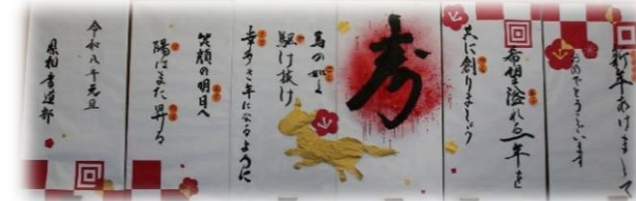 新年あけまして
おめでとうございます
希望溢れる一年を
共に創りましょう
寿
馬の如く
駆け抜け
幸多き年になるように
笑顔の明日へ
陽はまた昇る
令和八年元旦
書道部